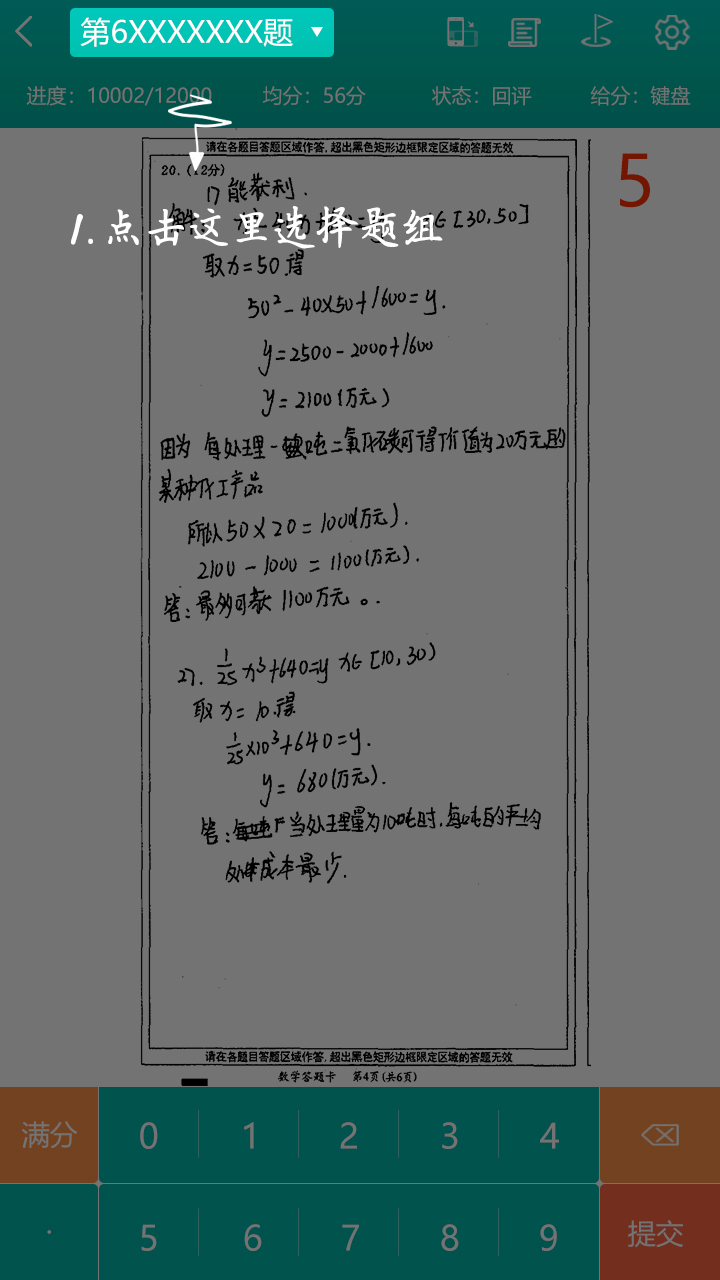 第6XXXXXXX题
进度：10002/12000 均分：56分 状态：回评 给分：键盘
请在各题目答题区域作答，超出黑色矩形边框限定区域的答题无效
20.（12分）
5
1）能获利.
1.点击这里选择题组
∈[30,50]
取x=50得
50²-40×50+1600=y.
y=2500-2000+1600
y=2100(万元)
因为 每处理一吨二氧化碳可得价值为20万元的
某种化工产品
所以50×20=1000(万元).
2100-1000=1100(万元).
答：最多可获1100万元。.
27. 1/25 x³+640=y x∈[10,30)
取x=10.得
1/25×10³+640=y.
y=680(万元).
答：当处理量为10吨时.每吨的平均
成本最少.
请在各题目答题区域作答，超出黑色矩形边框限定区域的答题无效
数学答题卡 第4页(共6页)
满分 0 1 2 3 4
· 5 6 7 8 9 提交